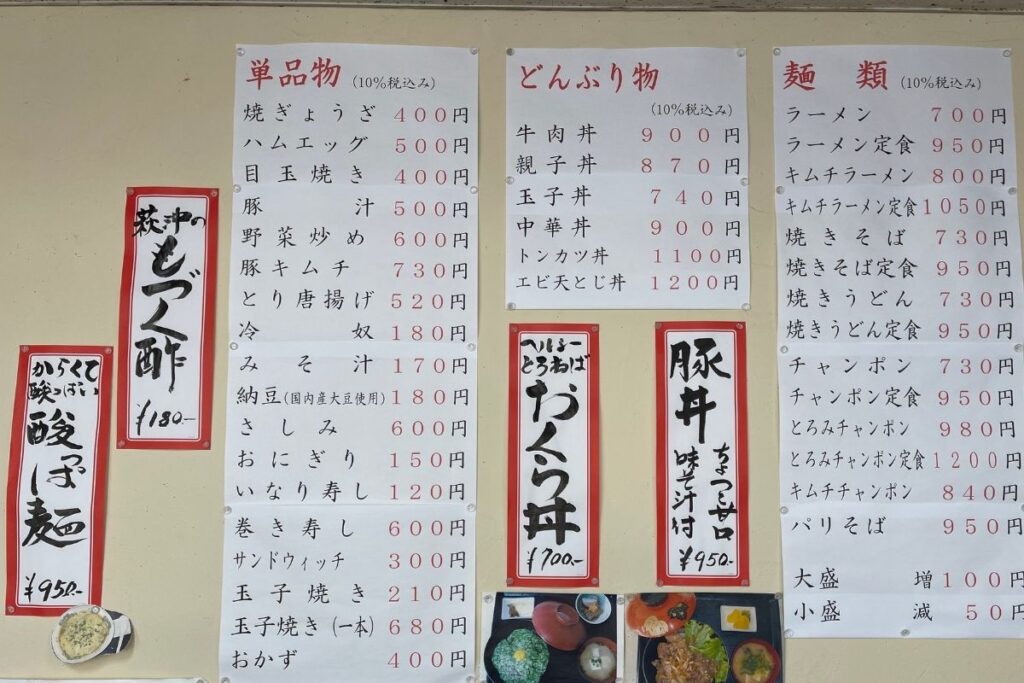 単品物(10%税込み)
焼ぎょうざ 400円
ハムエッグ 500円
目玉焼き 400円
豚汁 500円
野菜炒め 600円
豚キムチ 730円
とり唐揚げ 520円
冷奴 180円
みそ汁 170円
納豆(国内産大豆使用) 180円
さしみ 600円
おにぎり 150円
いなり寿し 120円
巻き寿し 600円
サンドウィッチ 300円
玉子焼き 210円
玉子焼き(一本) 680円
おかず 400円
どんぶり物
(10%税込み)
牛肉丼 900円
親子丼 870円
玉子丼 740円
中華丼 900円
トンカツ丼 1100円
エビ天とじ丼 1200円
麺類(10%税込み)
ラーメン 700円
ラーメン定食 950円
キムチラーメン 800円
キムチラーメン定食 1050円
焼きそば 730円
焼きそば定食 950円
焼きうどん 730円
焼きうどん定食 950円
チャンポン 730円
チャンポン定食 950円
とろみチャンポン 980円
とろみチャンポン定食 1200円
キムチチャンポン 840円
パリそば 950円
大盛 増100円
小盛 減50円
萩沖の
もづく酢
¥180-
からくて
酸っぱい
酸っぱ麺
¥950-
ヘルシー
とろねば
おくら丼
¥700-
豚丼
ちょっと甘口
味そ汁付
¥950-